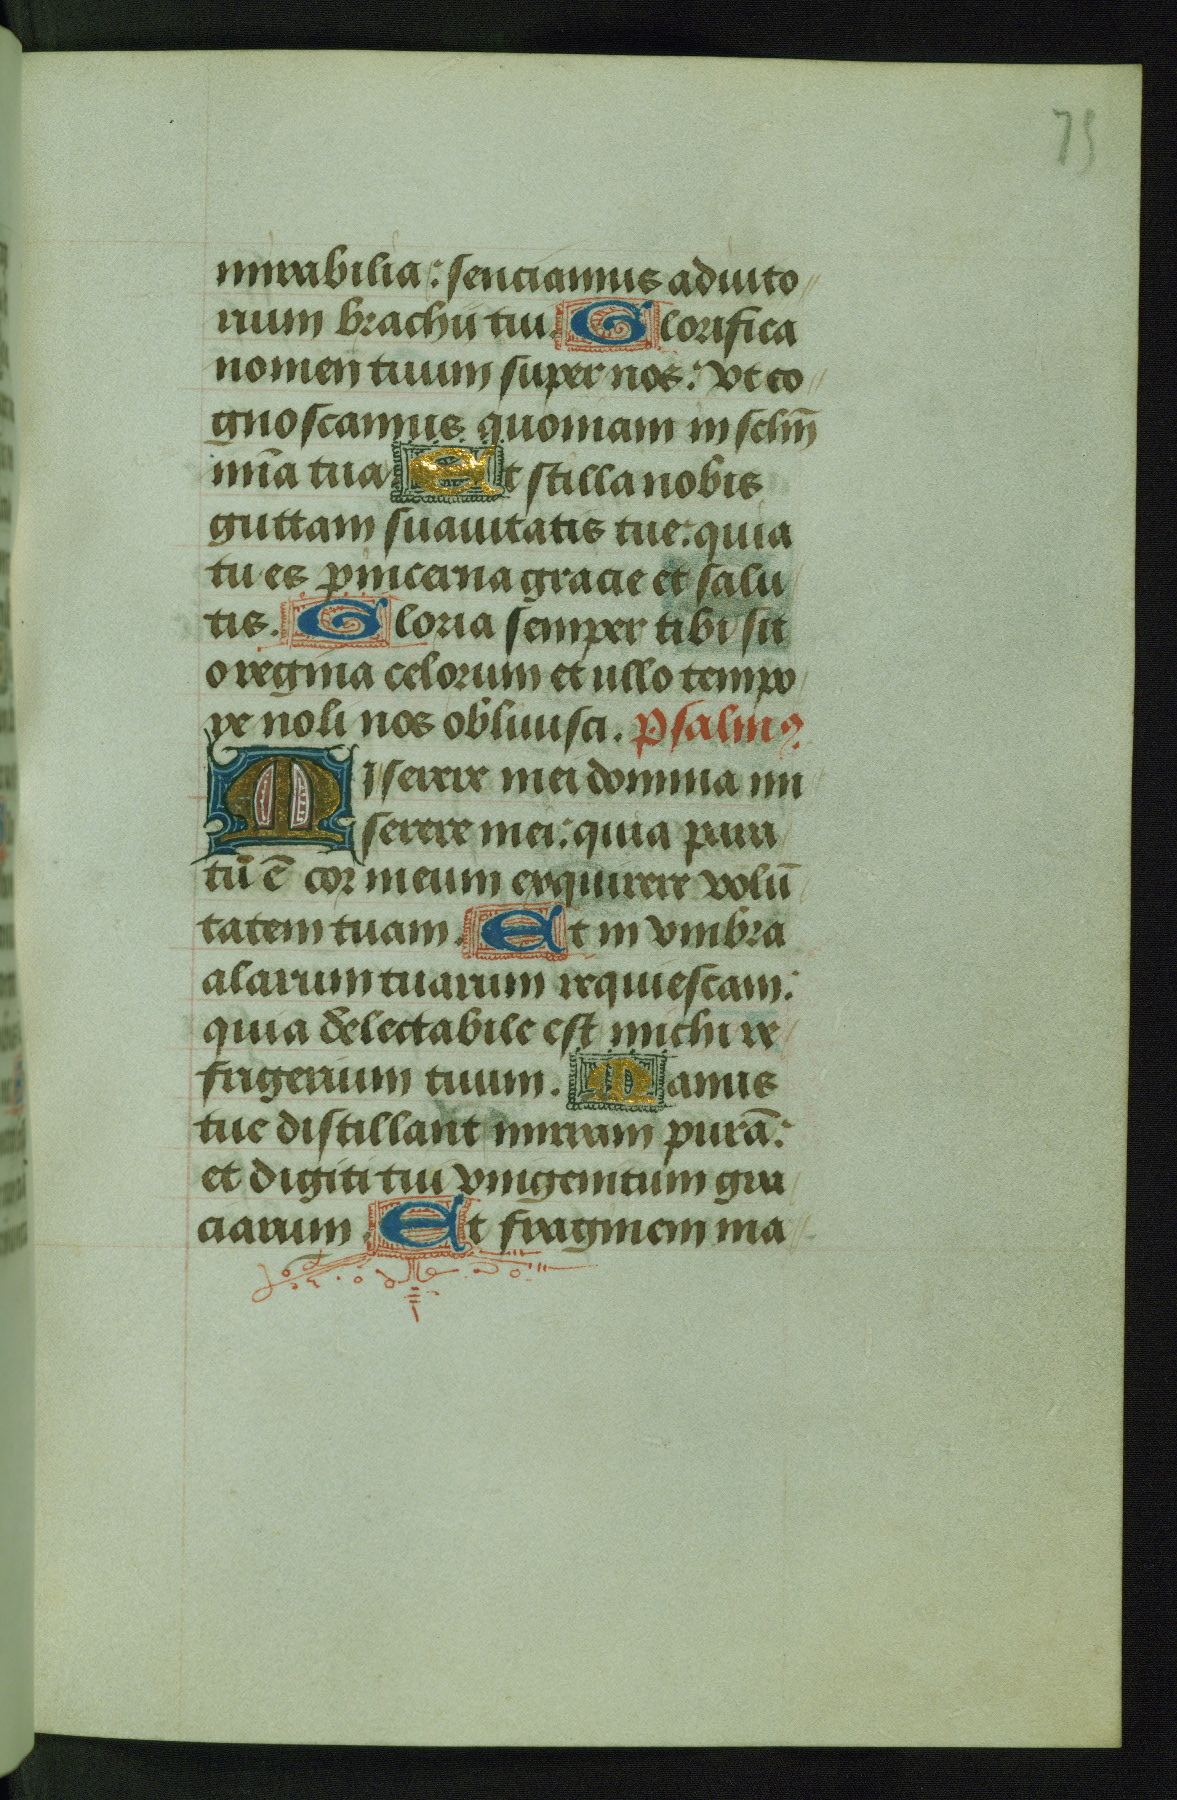 75
mirabilia: senciamus adiuto
rium brachii tui. Glorifica
nomen tuum super nos: vt co
gnoscamus quoniam in sclm̄
mīa tua Et stilla nobis
guttam suauitatis tue: quia
tu es pincerna gracie et salu
tis. Gloria semper tibi sit
o regina celorum et ullo tempo
re noli nos obliuisci. Psalmꝰ
Miserere mei domina mi
serere mei: quia para
tū ē cor meum exquirere volū
tatem tuam. Et in vmbra
alarum tuarum requiescam:
quia delectabile est michi re
frigerium tuum. Manus
tue distillant mirram purā:
et digiti tui vnigenitum gra
ciarum. Et fragmem ma